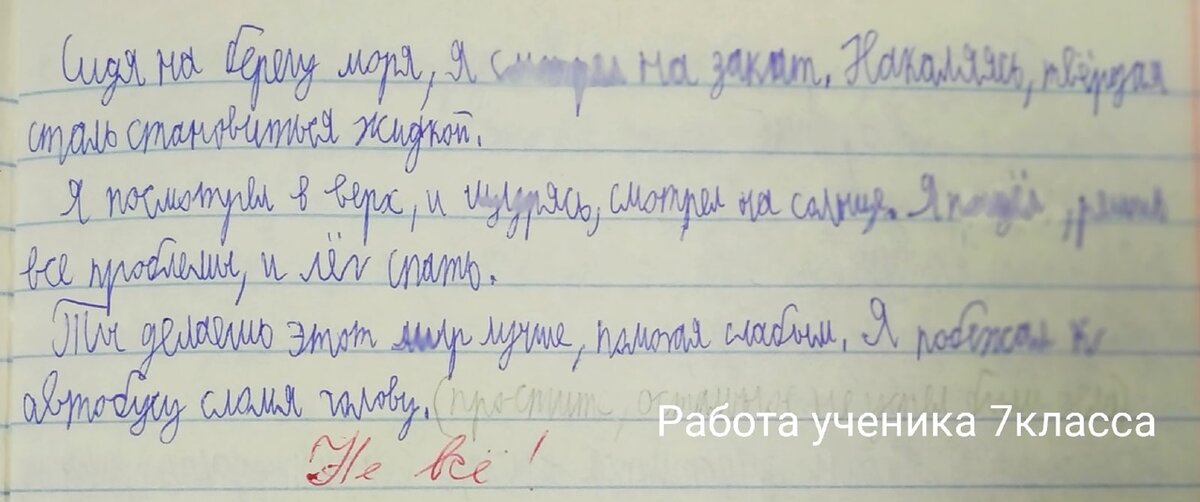 Сидя на берегу моря, я смотрел на закат. Накаляясь, твёрдая
сталь становиться жидкой.
Я посмотрел в верх, и щурясь, смотрел на солнце. Я , решил
все проблемы, и лёг спать.
Ты делаешь этот мир лучше, помогая слабым. Я побежал к
автобусу сломя голову. (простите,
Работа ученика 7класса
Не всё!